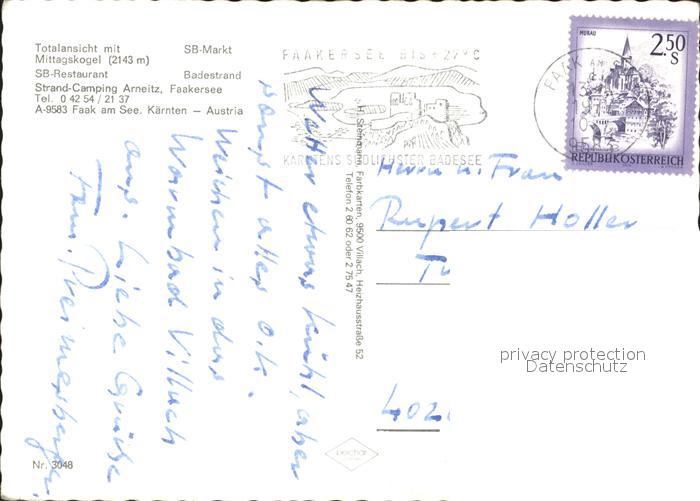 Totalansicht mit SB-Markt
Mittagskogel (2143 m)
SB-Restaurant Badestrand
Strand-Camping Arneitz, Faakersee
Tel. 0 42 54 / 21 37
A-9583 Faak am See. Kärnten – Austria
FAAKERSEE BIS + 27° C
KÄRNTENS SÜDLICHSTER BADESEE
MURAU
2.50
S
REPUBLIK ÖSTERREICH
FAAK AM
9583
Wetter etwas kühl, aber
sonst alles o.k.
Weichen in das
Warmbad Villach
aus. Liebe Grüße
Fam.
H. Steinmann, Farbkarten, 9500 Villach, Heizhausstraße 52
Telefon 2 60 62 oder 2 75 47
Herrn u. Frau
Rupert Holler
402
privacy protection
Datenschutz
Nr. 3048